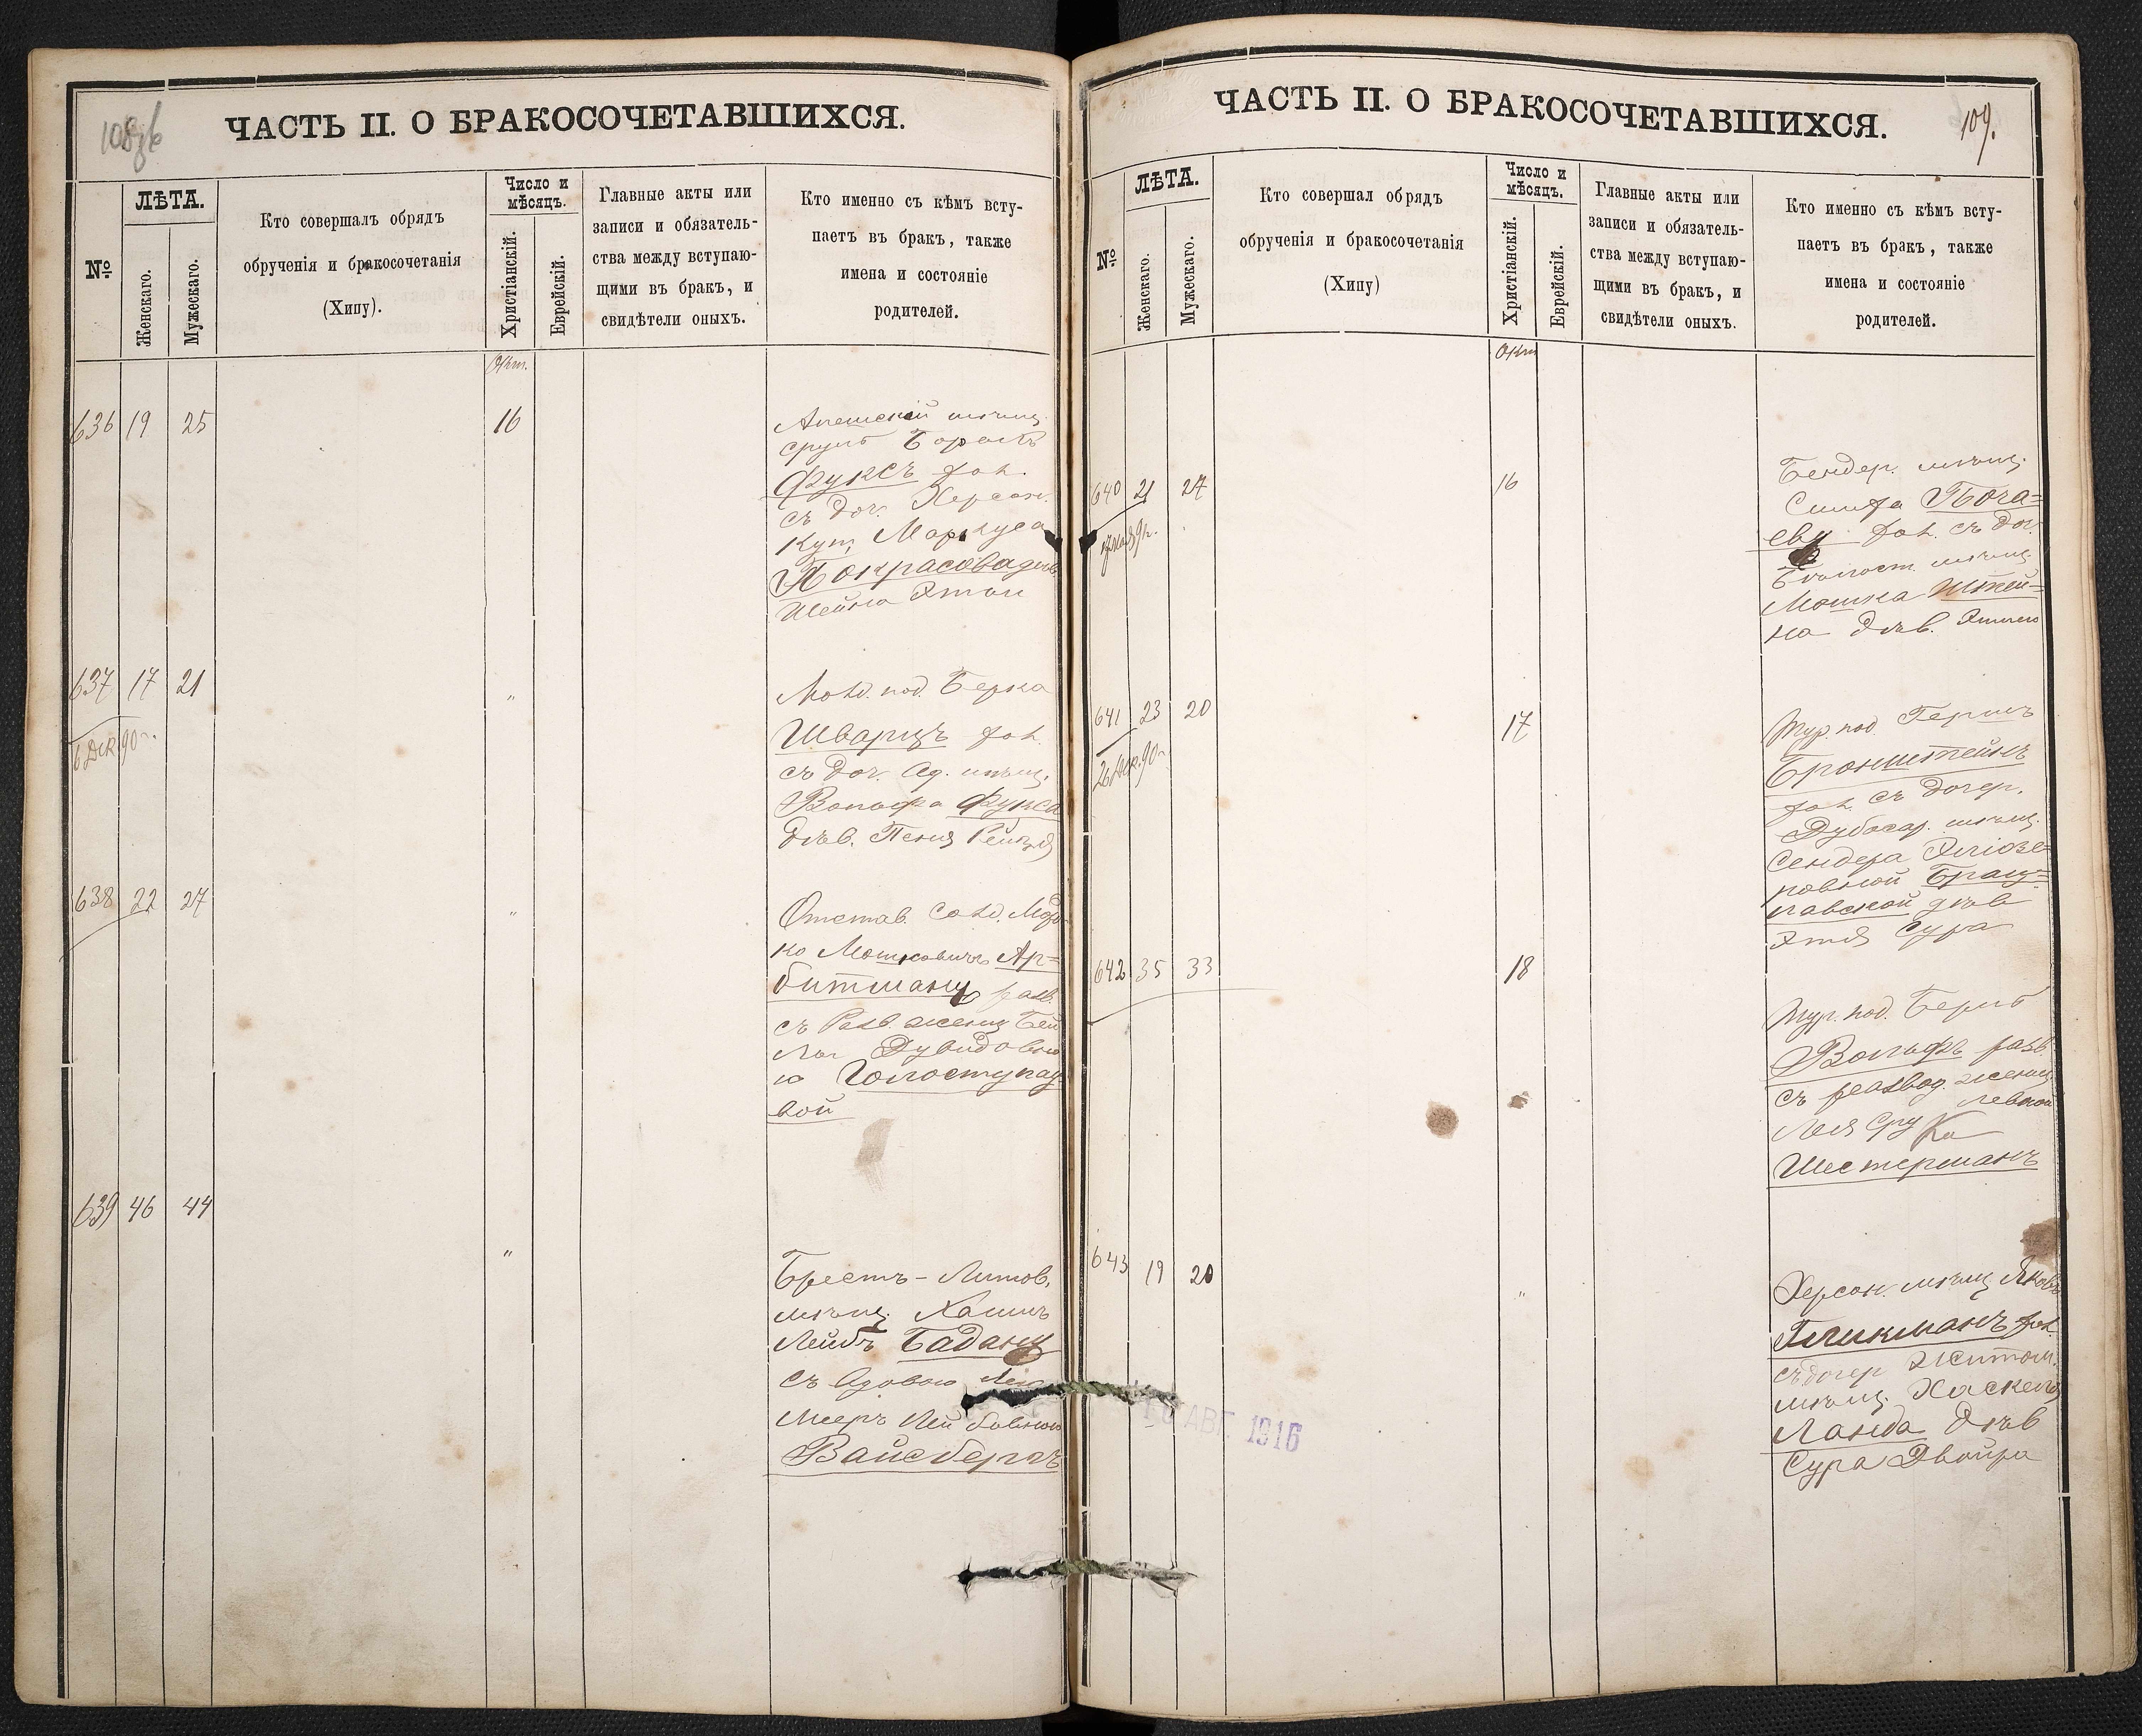 108
ЧАСТЬ II. О БРАКОСОЧЕТАВШИХСЯ.
№
ЛѢТА.
Женскаго.
Мужескаго.
Кто совершалъ обрядъ
обрученія и бракосочетанія
(Хипу).
Число и
мѣсяцъ.
Христіанскій.
Еврейскій.
Главные акты или
записи и обязатель-
ства между вступаю-
щими въ бракъ, и
свидѣтели оныхъ.
Кто именно съ кѣмъ всту-
паетъ въ бракъ, также
имена и состояніе
родителей.
Окт.
636 19 25
16
мѣщ.
Сруль Борохъ
Фуксъ хол.
съ доч. Херсон.
куп. Маркуса
Покрасова дѣв.
Шейна Этли
637 17 21
6 Дек. 90 г.
"
Молд. под. Берка
Шварцъ хол.
съ доч. Од. мѣщ.
Вольфа Фукса
дѣв. Песня Рейзя
638 22 27
"
Отстав. солд. Мор
ко Мошковичъ Ар=
битманъ разв.
съ разв. женщ. Бей
лои Дувидовно
ю
вой
639 46 44
"
Брестъ-Литов.
мѣщ. Хаимъ
Лейбъ Баданъ
съ вдовою Леи
Мееръ Лейбовною
Вайсбергъ
109.
ЧАСТЬ II. О БРАКОСОЧЕТАВШИХСЯ.
№
ЛѢТА.
Женскаго.
Мужескаго.
Кто совершал обрядъ
обрученія и бракосочетанія
(Хипу)
Число и
мѣсяцъ.
Христіанскій.
Еврейскій.
Главные акты или
записи и обязатель-
ства между вступаю-
щими въ бракъ, и
свидѣтели оныхъ.
Кто именно съ кѣмъ всту-
паетъ въ бракъ, также
имена и состояніе
родителей.
Окт
640 21 27
16
Бендер. мѣщ.
хол. съ доч.
мѣщ.
Мошка Штей=
на дѣв.
641 23 20
26 Дек. 90 г.
17
Тур. под. Гершъ
Бронштейнъ
хол. съ дочер.
Дубосар. мѣщ.
Сендера Эліозе=
ровной Брац=
лавской дѣв
Этя Сура
642 35 33
18
Тур. под. Беръ
Вольфъ разв.
съ развод. женщ.
Лея Сру левной
Шестерманъ
643 19 20
"
Херсон. мѣщ Яковъ
Гликманъ хол.
съ дочер Житом.
мѣщ. Хаскеля
Ланда дѣв
Сура Двойра
АВГ. 1916